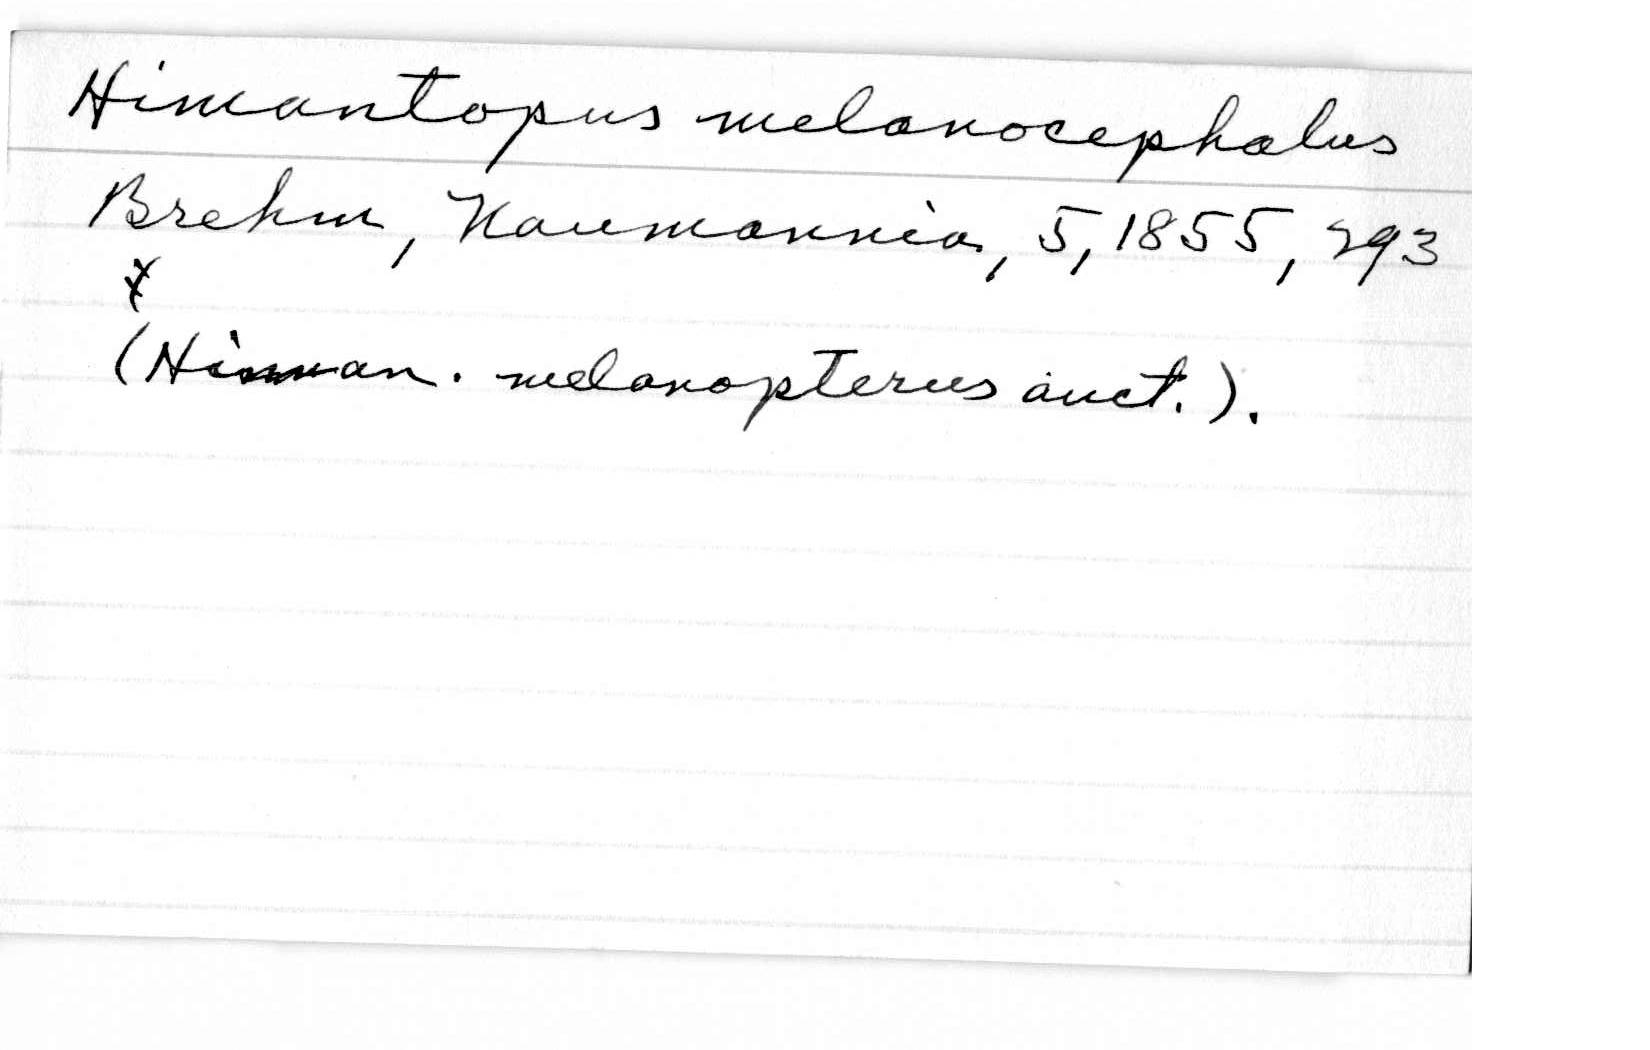 Himantopus melanocephalus
Brehm, Naumannia, 5, 1855, 293
x
(Himan. melanopterus auct.).